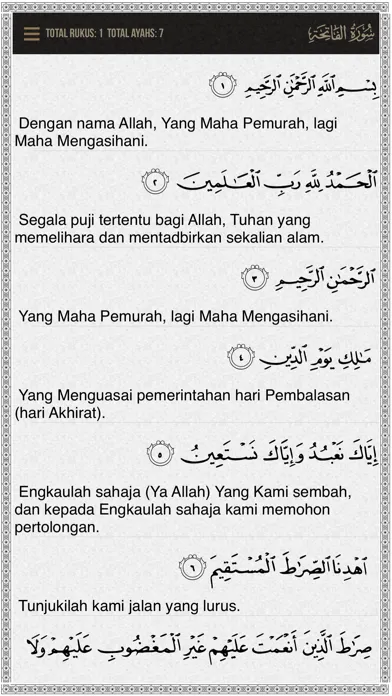 TOTAL RUKUS: 1 TOTAL AYAHS: 7 سُورَةُ الفَاتِحَة
بِسْمِ اللَّهِ الرَّحْمَٰنِ الرَّحِيمِ ١
Dengan nama Allah, Yang Maha Pemurah, lagi
Maha Mengasihani.
الْحَمْدُ لِلَّهِ رَبِّ الْعَالَمِينَ ٢
Segala puji tertentu bagi Allah, Tuhan yang
memelihara dan mentadbirkan sekalian alam.
الرَّحْمَٰنِ الرَّحِيمِ ٣
Yang Maha Pemurah, lagi Maha Mengasihani.
مَالِكِ يَوْمِ الدِّينِ ٤
Yang Menguasai pemerintahan hari Pembalasan
(hari Akhirat).
إِيَّاكَ نَعْبُدُ وَإِيَّاكَ نَسْتَعِينُ ٥
Engkaulah sahaja (Ya Allah) Yang Kami sembah,
dan kepada Engkaulah sahaja kami memohon
pertolongan.
اهْدِنَا الصِّرَاطَ الْمُسْتَقِيمَ ٦
Tunjukilah kami jalan yang lurus.
صِرَاطَ الَّذِينَ أَنْعَمْتَ عَلَيْهِمْ غَيْرِ الْمَغْضُوبِ عَلَيْهِمْ وَلَا